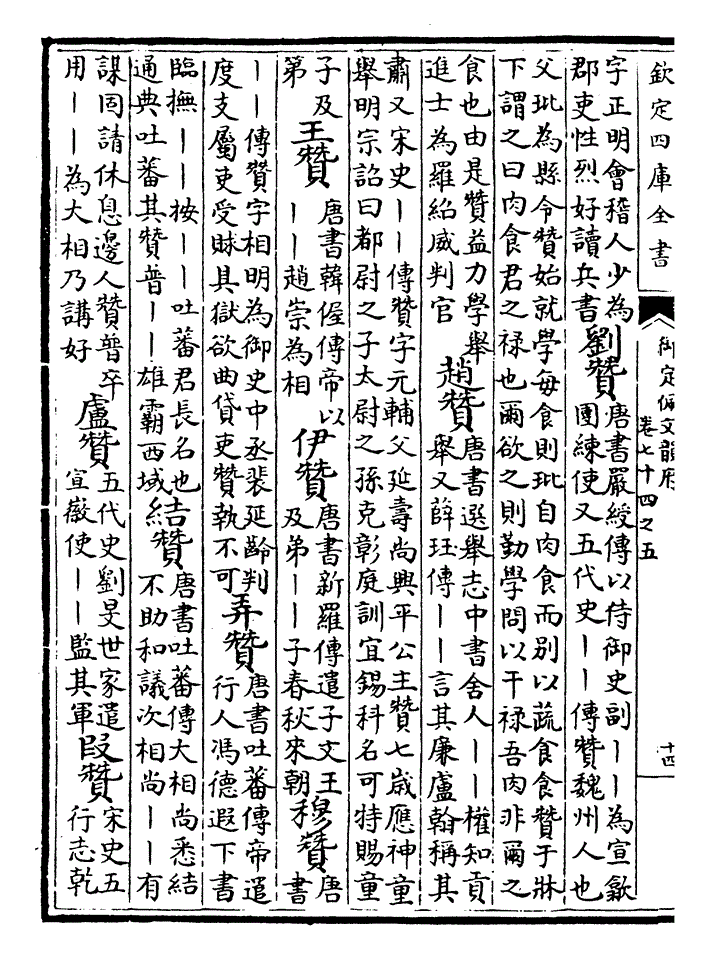 欽定四庫全書
御定佩文韻府
卷七十四之五
十四
字正明會稽人少為
郡吏性烈好讀兵書
劉贊
唐書嚴綬傳以侍御史副——為宣歙
團練使又五代史——傳贊魏州人也
父玭為縣令贊始就學每食則玭自肉食而别以蔬食食贊于牀
下謂之曰肉食君之禄也爾欲之則勤學問以干禄吾肉非爾之
食也由是贊益力學舉
進士為羅紹威判官
趙贊
唐書選舉志中書舍人——權知貢
舉又薛珏傳——言其廉盧翰稱其
肅又宋史——傳贊字元輔父延壽尚興平公主贊七歳應神童
舉明宗詔曰都尉之子太尉之孫克彰庭訓宜錫科名可特賜童
子及
第
王贊
唐書韓偓傳帝以
——趙崇為相
伊贊
唐書新羅傳遣子文王
及弟——子春秋來朝
穆贊
唐
書
——傳贊字相明為御史中丞裴延齡判
度支屬吏受賕具獄欲曲貸吏贊執不可
弄贊
唐書吐蕃傳帝遣
行人馮德遐下書
臨撫——按——吐蕃君長名也
通典吐蕃其贊普——雄霸西域
結贊
唐書吐蕃傳大相尚悉結
不助和議次相尚——有
謀固請休息邊人贊普卒
用——為大相乃講好
盧贊
五代史劉旻世家遣
宣徽使——監其軍
段贊
宋史五
行志乾